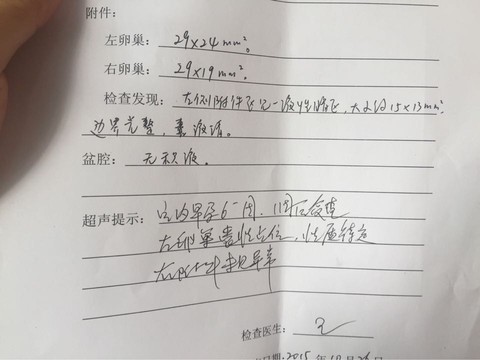 附件：
左卵巢： 29×24mm²。
右卵巢： 29×19mm²。
检查发现： 左侧附件区见一液性暗区，大小约15×13mm²
边界完整，囊液清。
盆腔： 无积液。
超声提示： 宫内早孕6⁻周，1周后复查
左卵巢囊性占位，性质待定
右附件未见异常
检查医生：
日期：2015年10月26日